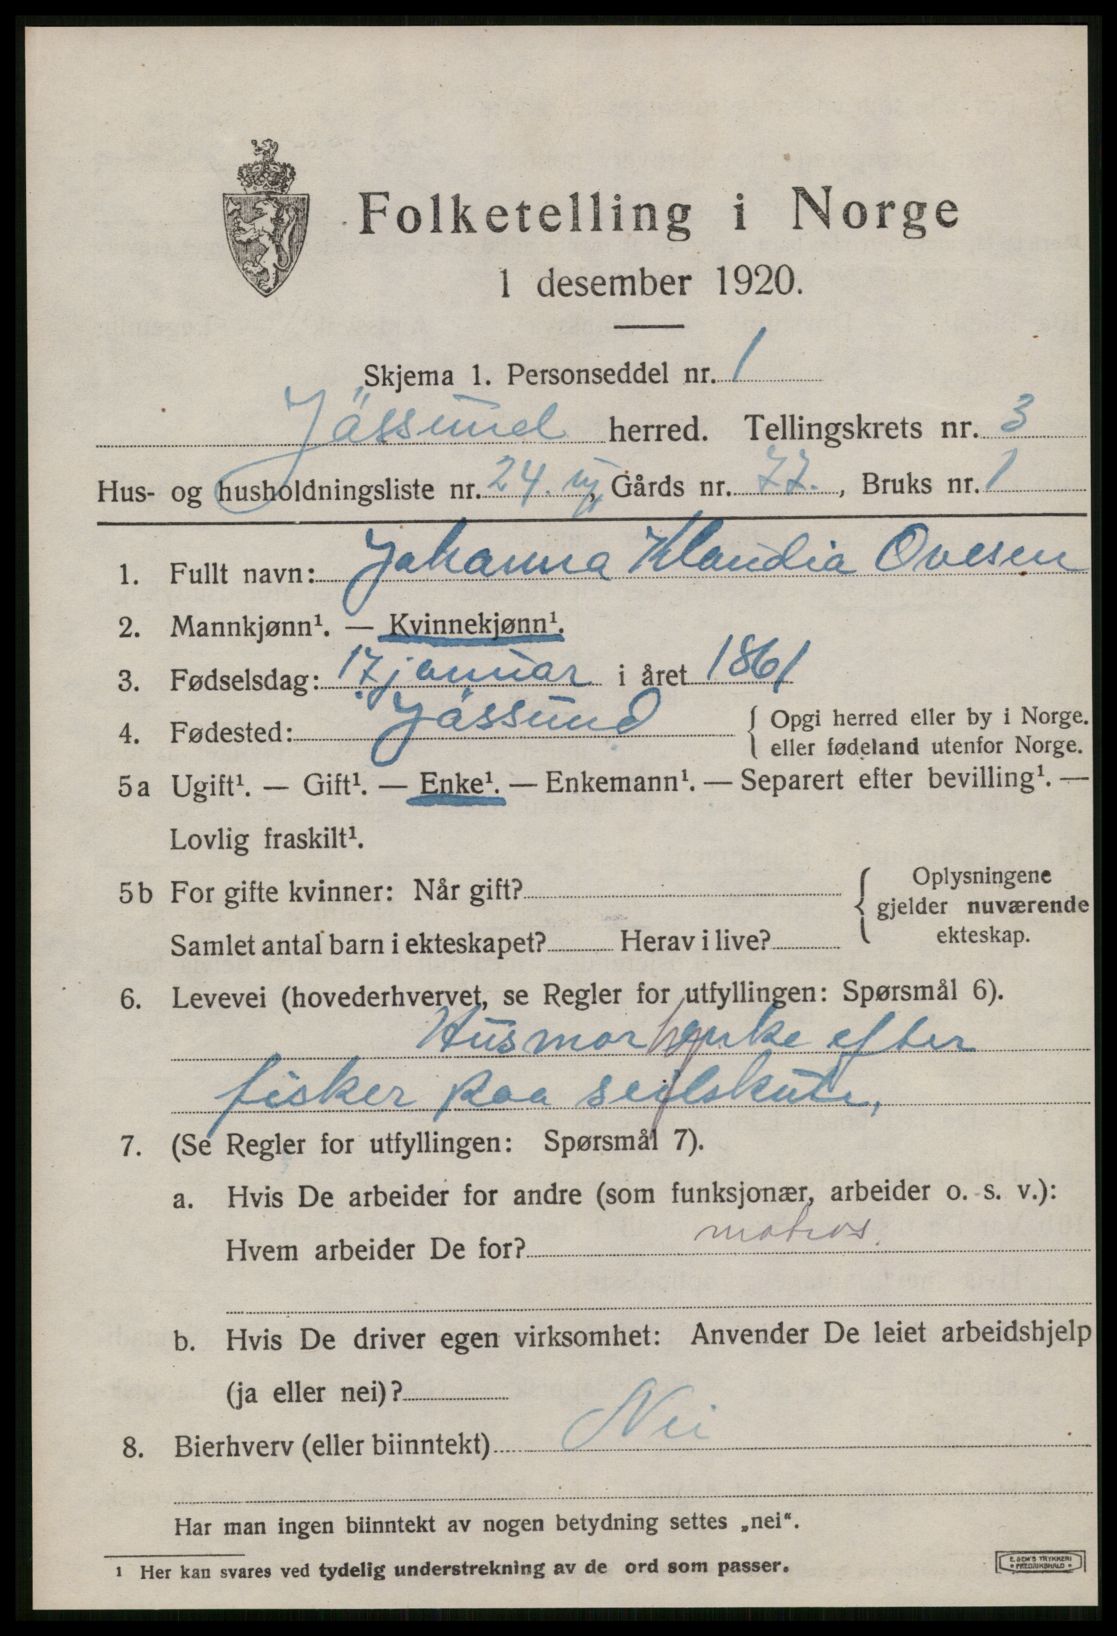 Folketelling i Norge
1 desember 1920.
Skjema 1. Personseddel nr. 1
Jössund herred. Tellingskrets nr. 3
Hus- og husholdningsliste nr. 24. , Gårds nr. 77. , Bruks nr. 1
1. Fullt navn: Johanna Klaudia Ovesen
2. Mannkjønn¹. — Kvinnekjønn¹.
3. Fødselsdag: 17 januar i året 1861
4. Fødested: Jössund { Opgi herred eller by i Norge.
eller fødeland utenfor Norge.
5a Ugift¹. — Gift¹. — Enke¹. — Enkemann¹. — Separert efter bevilling¹. —
Lovlig fraskilt¹.
5b For gifte kvinner: Når gift?
Samlet antal barn i ekteskapet? Herav i live?
{ Oplysningene
gjelder nuværende
ekteskap.
6. Levevei (hovederhvervet, se Regler for utfyllingen: Spørsmål 6).
Husmor enke efter
fisker paa seilskute,
7. (Se Regler for utfyllingen: Spørsmål 7).
a. Hvis De arbeider for andre (som funksjonær, arbeider o. s. v.):
Hvem arbeider De for? matros.
b. Hvis De driver egen virksomhet: Anvender De leiet arbeidshjelp
(ja eller nei)?
8. Bierhverv (eller biinntekt) Nei
Har man ingen biinntekt av nogen betydning settes „nei“.
¹ Her kan svares ved tydelig understrekning av de ord som passer.
E. SEM'S TRYKKERI
FREDRIKSHALD